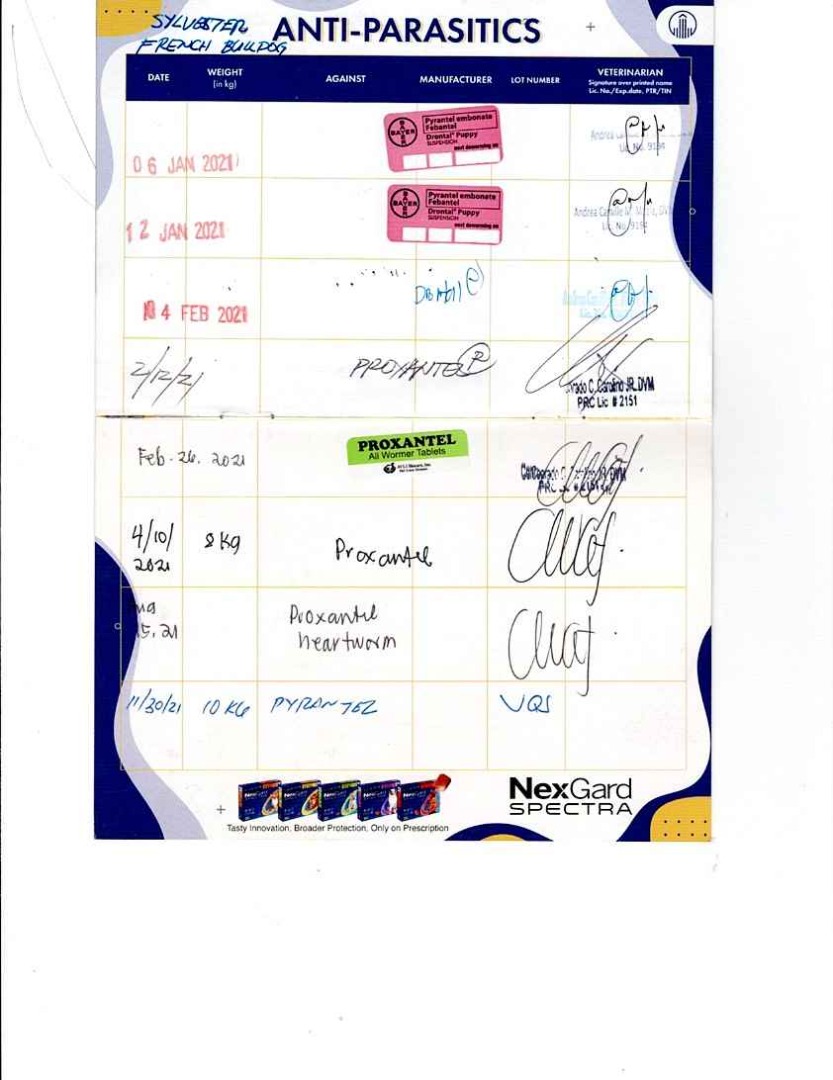 SYLVESTER
FRENCH BULLDOG
ANTI-PARASITICS
DATE
WEIGHT
(in kg)
AGAINST
MANUFACTURER
LOT NUMBER
VETERINARIAN
Signature over printed name
Lic. No./Exp.date, PTR/TIN
06 JAN 2021
BAYER
Pyrantel embonate
Febantel
Drontal® Puppy
SUSPENSION
next deworming on
Andrea
Lic. No. 9194
12 JAN 2021
BAYER
Pyrantel embonate
Febantel
Drontal® Puppy
SUSPENSION
next deworming on
Andrea
Lic. No. 9194
04 FEB 2021
2/12/21
PROXANTEL
C. JR. DVM
PRC Lic # 2151
Feb. 26. 2021
PROXANTEL
All Wormer Tablets
4/10/
2021
8 Kg
Proxantel
15, 21
Proxantel
heartworm
11/30/21 10 KG PYRANTEL
NexGard
SPECTRA
Tasty Innovation, Broader Protection, Only on Prescription